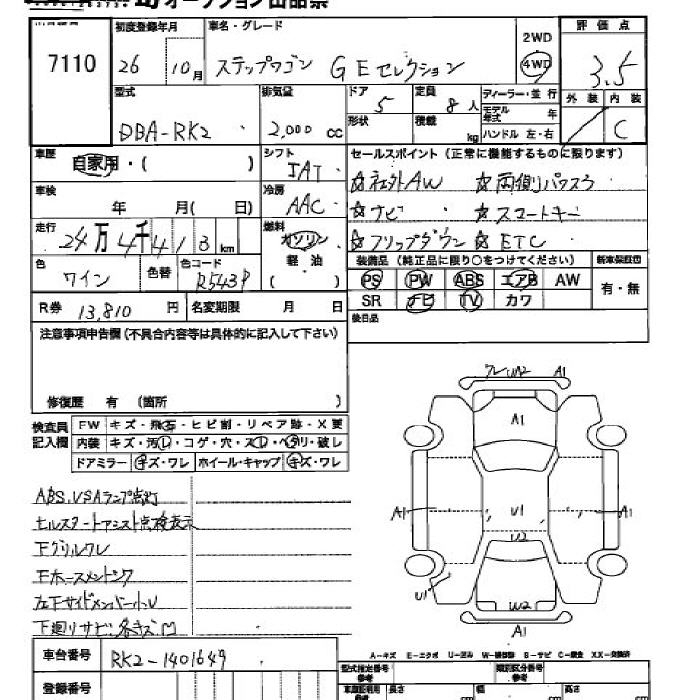 オークション出品票
7110
初度登録年月
26 10月
車名・グレード
ステップワゴン GEセレクション
2WD
4WD
評価点
3.5
外装 内装
C
型式
DBA-RK2
排気量
2,000 cc
ドア
5
形状
定員
8人
積載
kg
ディーラー・並行
モデル年式 年
ハンドル 左・右
車歴
自家用・( )
シフト
IAT
セールスポイント(正常に機能するものに限ります)
☆社外AW ☆両側パワスラ
☆ナビ ☆スマートキー
☆フリップダウン ☆ETC
車検
年 月( 日)
冷房
AAC
走行
24万4千418km
燃料
ガソリン
軽油
( )
色
ワイン
色替
色コード
R543P
装備品(純正品に限り○をつけてください)
新車保証書
PS PW ABS エアB AW
SR ナビ TV カワ
有・無
R券 13,810円
名変期限 月 日
後日品
注意事項申告欄(不具合内容等は具体的に記入して下さい)
修復歴 有(箇所 )
検査員記入欄
FW キズ・飛石・ヒビ割・リペア跡・X要
内装 キズ・汚レ・コゲ・穴・スレ・ヘタリ・破レ
ドアミラー キズ・ワレ ホイール・キャップ キズ・ワレ
ABS.VSAランプ点灯
ヒルスタートアシスト点検表示
下グリルワレ
下ホースメントンク
左下サイドメンバー小U
下廻りサビ、各キズ凹
ワレ UA2 A1
A1
A1
U1
A1
W2
U1
W2
A1
A-キズ E-エクボ U-凹み W-補修跡 S-サビ C-腐食 XX-交換済
車台番号
RK2-1401649
登録番号
型式指定番号 参考
類別区分番号 参考
長さ cm
幅 cm
高さ cm